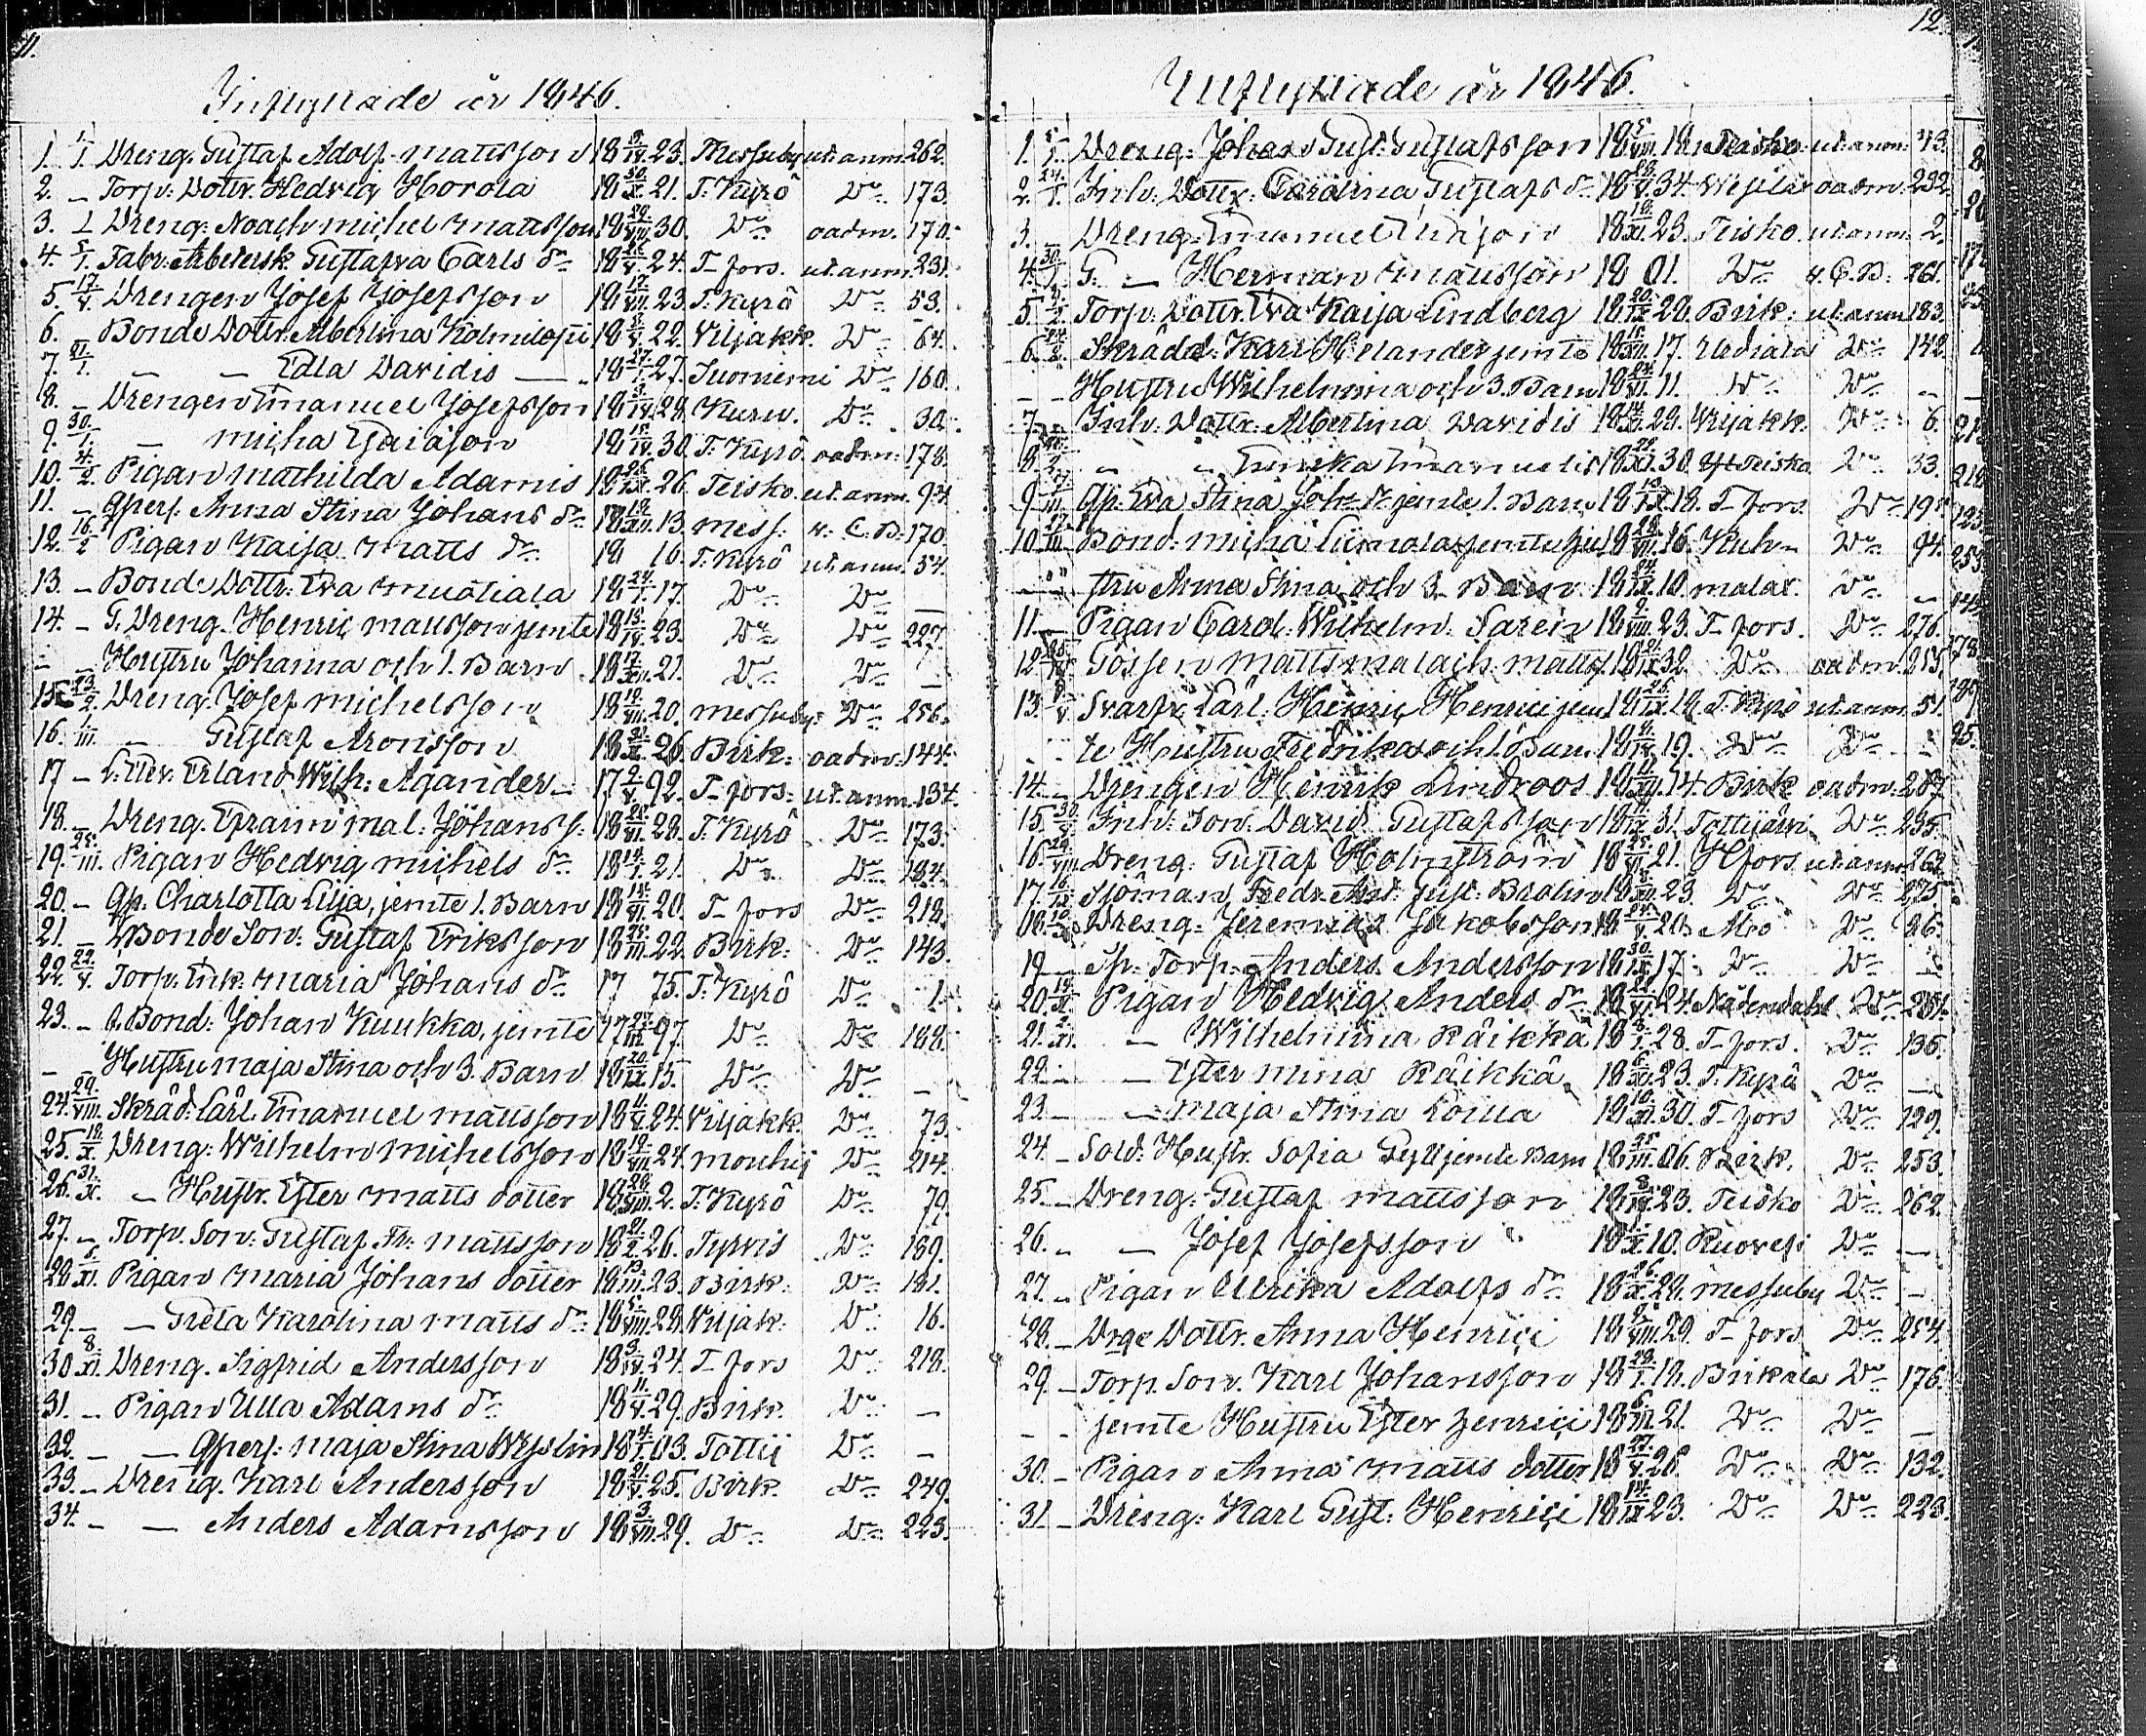 11.
Inflyttade år 1846.
1. 1/1. Dreng. Gustaf Adolf Mattsson 18 9/IV. 23. Messuby ut anm. 262.
2. _ Torp. Dottr. Hedvig Horola 18 30/X. 21. T. Kyrö Do. 173.
3. _ Dreng. Noach Michel Mattsson 18 29/VII. 30. Do. oadm. 170.
4. 5/1. Fabr. Arbetersk. Gustafva Carls dr. 24. T-fors. ut anm. 231.
5. 17/1. Drengen Josef Josefsson 18 17/VII. 23. T. Kyrö Do. 53.
6. Bonde Dottr. Albertina Kolmilospii 22. Viljakk. Do. 64.
7. 21/1. _ _ Edla Davidis _ 18 27/1. 27. Suoniemi Do. 160.
8. _ Drengen Emanuel Josefsson 28. Kuru. Do. 30.
9. 30/1. _ Micha Esaiasson 18 15/IV. 30. T. Kyrö. oadm. 178.
10. 4/2. Pigan Mathilda Adamis 18 26/IX. 26. Teisko. ut anm. 94.
11. _ Qpers. Anna Stina Johans dr. 18 19/XII. 13. Mess. H. C. B. 170.
12. 16/2 Pigan Kaija Matts dr. 18 16. T. Kyrö ut anm. 54.
13. _ Bonde Dottr. Eva Mustiala 18 24/1. 17. Do. Do. _
14. _ T. Dreng. Henric Mattsson jemte 18 15/IV. 23. Do. Do. 227.
_ _ Hustru Johanna och 1. Barn 18 17/XII. 21. Do. Do. _
15. 23/2. Dreng. Josef Michelsson 18 19/VII. 20. Messuby. Do. 256.
16. 1/III. _ Gustaf Aronsson 26. Birk. oadm. 144.
17 _ Erland Wilh: Agander _ 17 9/V. 92. T-fors: ut anm. 134.
18. _ Dreng. Efraim Mal: Johanss: 28. T. Kyrö Do. 173.
19. 25/III. Pigan Hedvig Michels dr. 18 19/1. 21. Do. Do. 184.
20. _ Qp. Charlotta Lilja, jemte 1. Barn 18 15/VI. 20. T-fors Do. 218.
21. _ Bonde Son. Gustaf Eriksson 18 25/III. 22. Birk. Do. 143.
22. 22/V. Torp. Enk. Maria Johans dr. 17 75. T. Kyrö Do. 1.
23. _ f. Bond: Johan Kuukka, jemte 17 97. Do. Do. 188.
_ _ Hustru Maja Stina och 3. Barn 18 20/IX. 15. Do. Do. _
24. 29/VIII. Skräd: Lärl. Emanuel Mattsson 18 11/V. 24. Viljakk. Do. 73.
25. 18/X. Dreng: Wilhelm Michelsson 18 19/VII. 24. Mouhij Do. 214.
26. 31/X. _ Hustr. Ester Matts dotter 2. T. Kyrö Do. 79.
27. _ Torp. Son: Gustaf Fr: Mattsson 18 21/X. 26. Tyrvis Do. 189.
28. 5/XI. Pigan Maria Johans dotter 18 13/III. 23. Birk. Do. 181.
29. _ _ Greta Karolina Matts dr. 28. Viljak. Do. 16.
30. 8/XI. Dreng. Sigfrid Andersson 18 3/IV. 24. T-fors Do. 218.
31. _ Pigan Ulla Adams dr. 18 11/V. 29. Birk. Do. _
32. _ _ Qpers. Maja Stina 18 4/1. 03. Tottij Do. _
33. _ Dreng. Karl Andersson 25. Birk. Do. 249.
34. _ _ Anders Adamsson 18 3/VII. 29. Do. Do. 223.
12.
Utflyttade år 1846.
1. 5/1. Dreng: Johan Gust: Gustafsson 18 5/VIII. 18. Teisko ut anm. 43.
2. 24/1. Inh. Dottr. Carolina Gustafs dr. 34. Vesilax oadm. 232.
3. _ Dreng. Emanuel 18 19/XI. 23. Teisko. ut anm. 2.
4. 30/1. T. _ Herman Mattsson 18 01. Do. H. C. B. 261.
5. Torp. Dottr. Eva Kaija Lindberg 18 20/IX. 28. Birk. ut anm. 183.
6. Skrädd. Karl Helander jemte 18 15/XII. 17. Urdiala Do. 142.
_ _ Hustru Wilhelmina och 3. Barn 11. Do. Do. _
7. _ Inh. Dottr. Albertina Davidis 29. Viljakk. Do. 6.
8. _ _ Emanuelis 30. Teisko Do. 33.
9. 17/III. Qp. Eva Stina Joh: dr. jemte 1. Barn 18 13/IX. 18. T-fors. Do. 191.
10. 27/III. Bond: Micha jemte hu 18 28/VII. 16. Kuh. Do. 94.
stru Anna Stina och 3. Barn 18 24/IX. 10. Malax. Do. _
11. _ Pigan Carol: Wilhelm: Sarein 18 9/VIII. 23. T-fors. Do. 276.
12. Gossen Matts Malach: Matts. 32. Do. oadm. 255.
13. 8/V Svarfv. Lärl. Henric Henrici jem 18. T. Kyrö ut anm. 51.
te Hustru Fredrika och 1. Barn 19. Do. Do. _
14. _ Drengen Henrik Lindroos 14. Birk oadm. 287.
15. 30. Inh. Son. David Gustafsson 31. Tottijärvi Do. 235.
16. 29/VIII. Dreng: Gustaf Holmström 18 25/VI. 21. Hfors ut anm. 262.
17. 16/IX. Sjöman Fredr. Ant. Gust. 23. Do. Do. 275.
18. Dreng. Jeremias Jakobsson 20. Åbo Do. 26.
19. _ Torp. Anders Andersson 18 30/IX. 17. Do. Do. _
20. 19/X. Pigan Hedvig Anders dr. 24. Nådendahl Do. 251.
21. 2/XI. _ Wilhelmina Räikkä 28. T-fors. Do. 136.
22. _ _ Ester Mina Räikkä 18 6/XI. 23. T. Kyrö Do. _
23. _ _ Maja Stina Louna 18 10/XI. 30. T-fors Do. 129.
24. _ Sold. Hustr. Sofia Gyll jemte Barn 18 25/III. 06. Birk. Do. 253.
25. _ Dreng: Gustaf Mattsson 18 8/IV. 23. Teisko Do. 262.
26. _ _ Josef Josefsson 10. Ruovesi Do. _
27. _ Pigan Ulrika Adolfs dr. 18 26/X. 28. Messuby Do. _
28. _ Drge Dottr. Anna Henrici 29. T-fors Do. 254.
29. _ Torp. Son. Karl Johansson 18 28/1. 18. Birkala Do. 176.
_ _ jemte Hustru Ester Henrici 21. Do. Do. _
30. _ Pigan Anna Matts dotter 18 27/V. 26. Do. Do. 132.
31. _ Dreng: Karl Gust: Henrici 18 14/IX 23. Do. Do. 223.